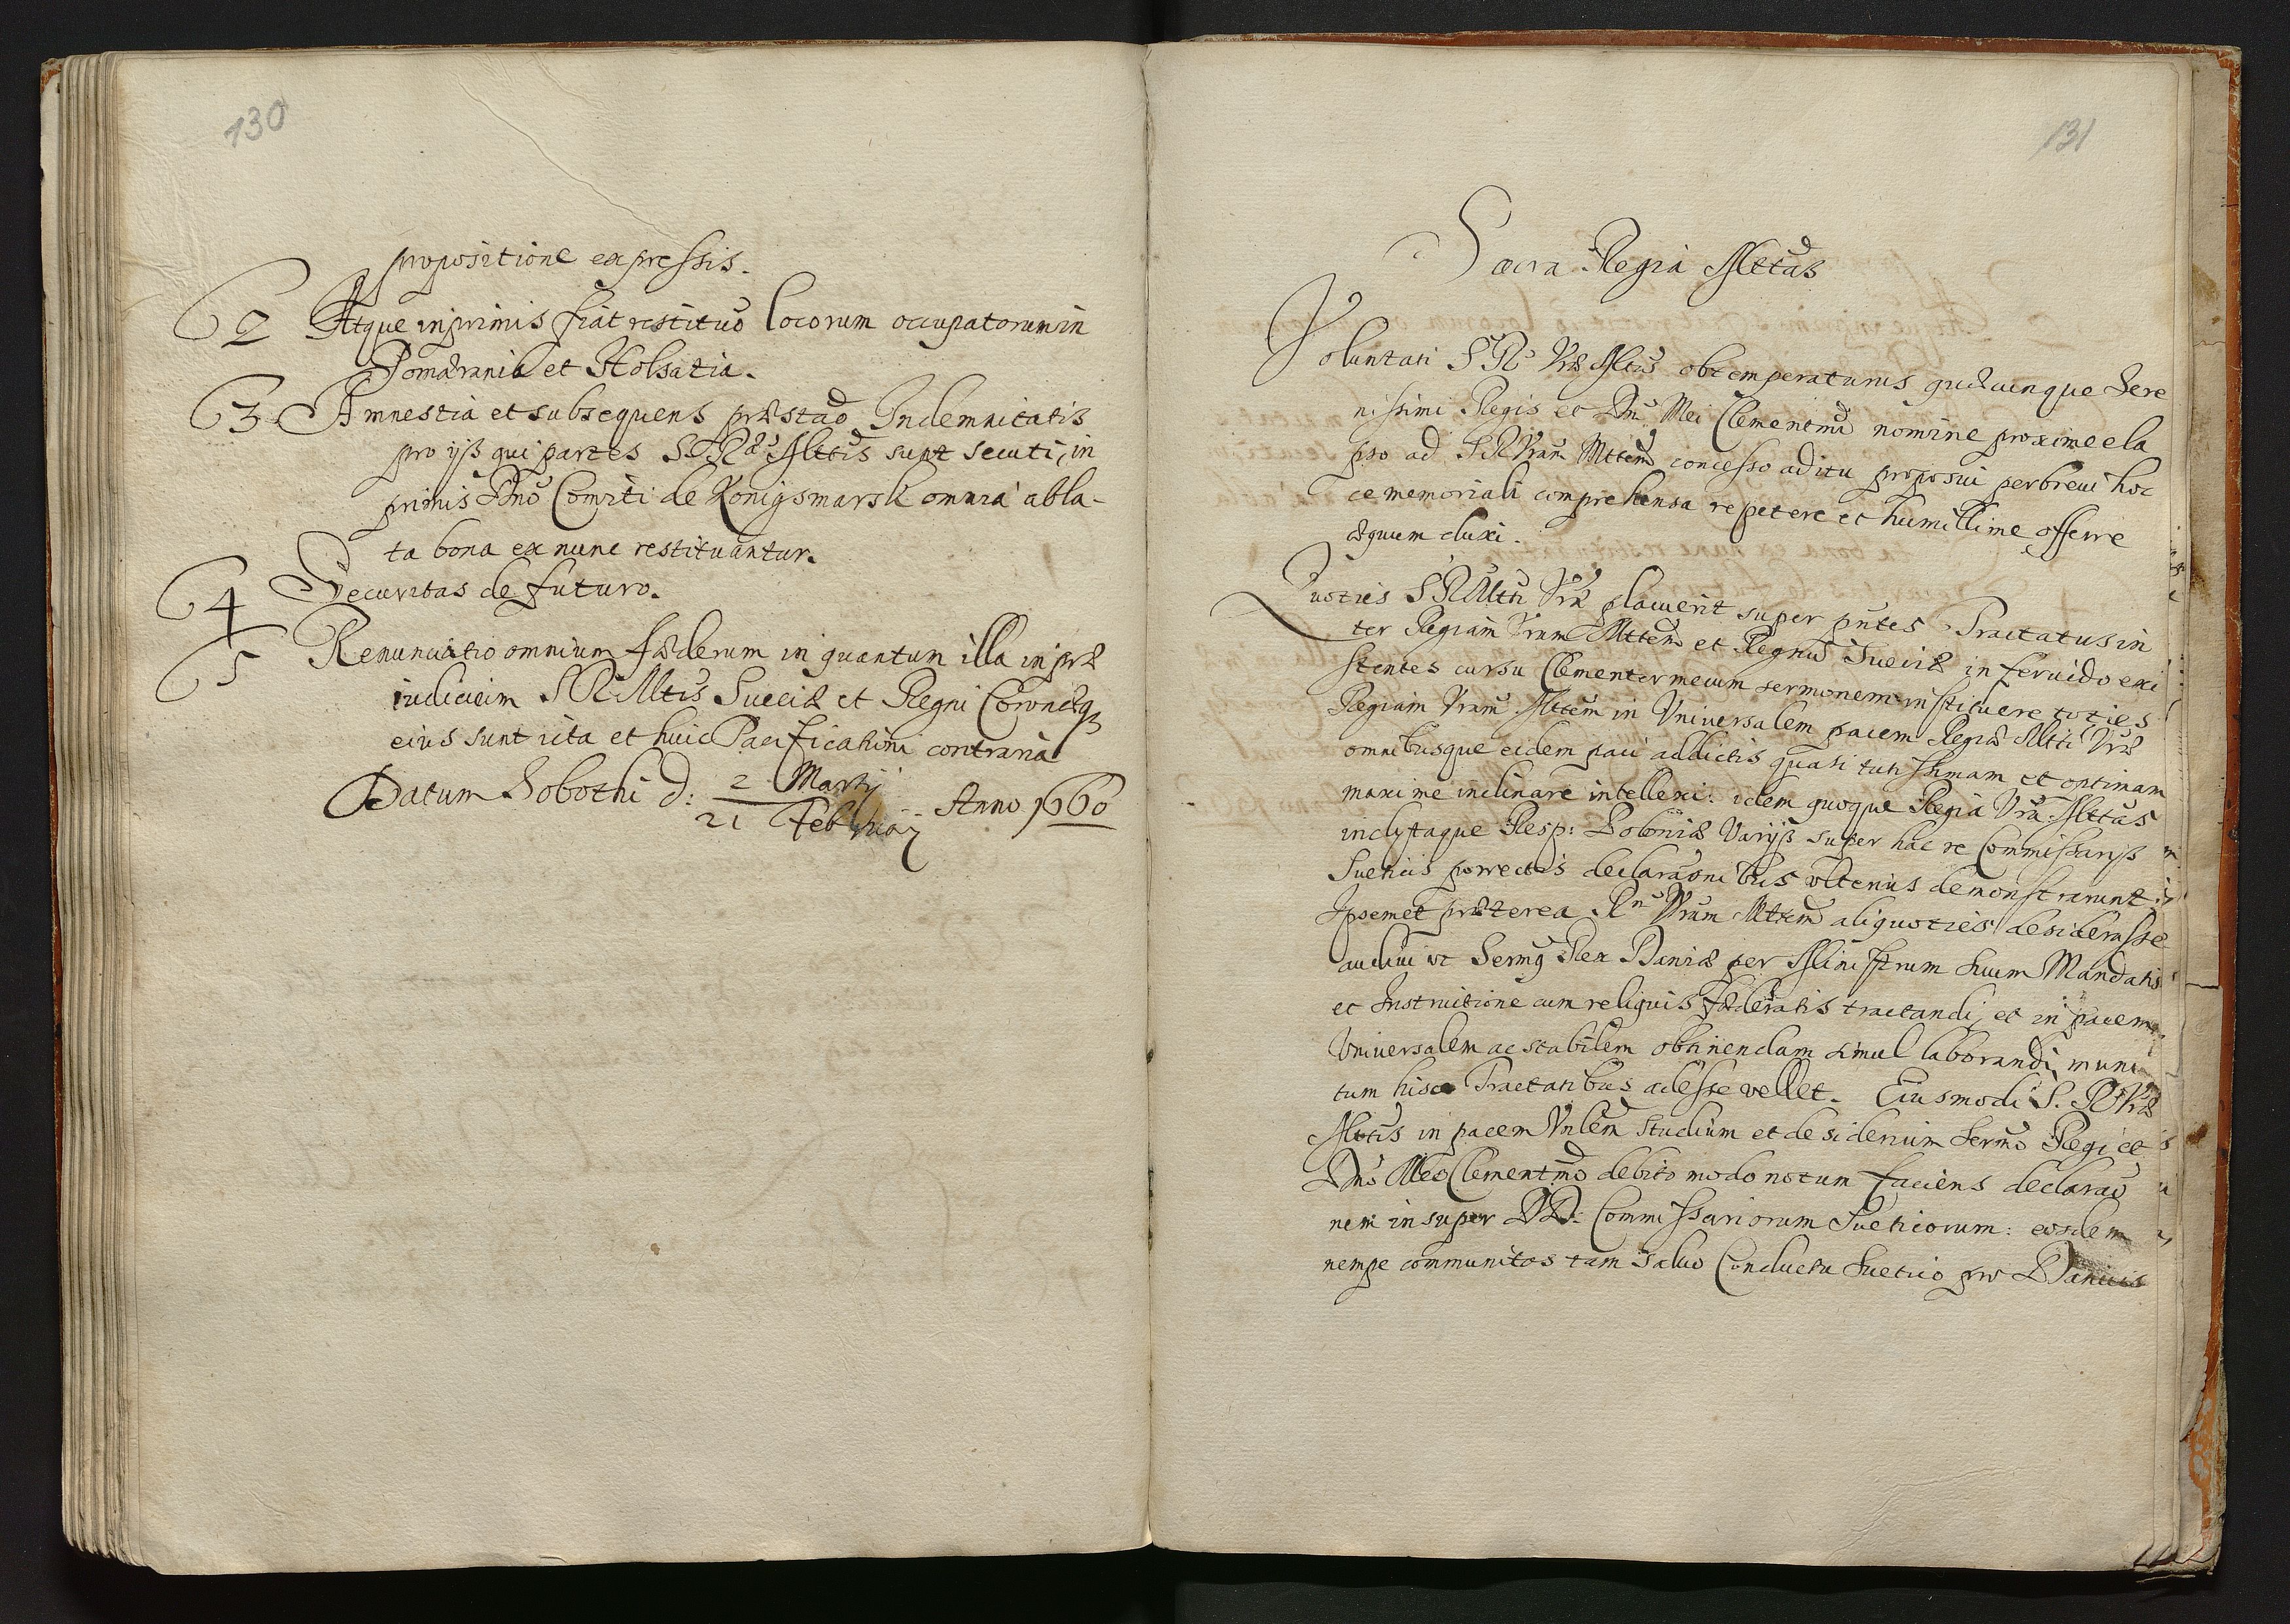 130
propositione expressis.
2 Atque inprimis fiat restitūo locorum occupatorum in
Pomæraniâ et Holsatia.
3 Amnestia et subsequens præstaō Indemnitatis
pro ijs qui partes S Ræ Mttis sunt secuti, in
primis Dnō Comiti de Konigsmarsk omnia abla-
ta bona ex nunc restituantur.
4 Securitas de futuro.
5 Renunciatio omnium fæderum in quantum illa in præ
iudicium S R Mttis Sueciæ et Regni Coronæq3
eius sunt icta et huic Pacificationi contraria
Datum Sobothi d: 2 Martij
21 Februarij Anno 1660
131
Sacra Regia Mttas
Voluntati S R Vræ Mttis obtemperaturus quæcunque Sere
nissimi Regis et Dni Mei Clementmi nomine proxime ela
pso ad S R Vram Mttem concesso aditu proposui perbrevi hoc
ce memoriali comprehensa repetere et humillime offerre
æquum duxi.
Quoties S R Mtti Vræ placuerit super pntes Tractatus in
ter Regiam Vram Mttem et Regnū Sueciæ in fervido exi
stentes cursu Clementer mecum sermonem instituere toties
Regiam Vram Mttem in Vniversalem pacem Regiæ Mtti Vræ
omnibusque eidem paci addictis quasi tutissimam et optimam
maxime inclinare intellexi: idem quoque Regia Vra Mttas
inclytaque Resp: Poloniæ Varijs super hac re Commissarijs
Sueticis porrectis declaraōnibus ulterius demonstrarunt;
Ipsemet præterea Rm Vram Mttem aliquoties desiderasse
audivi ut Sermg Rex Daniæ per Ministrum suum Mandatis
et Instructione cum reliquis fæderatis tractandi, et in pacem
Vniversalem ac stabilem obtinendam simul laborandi, muni
tum hisce Tractatibus adesse vellet. Eiusmodi S. R Vræ
Mttis in pacem Vnlem studium et desiderium Sermo Regi et
Dno Meo Clementmo debito modo notum faciens declaraō
nem insuper DD: Commissariorum Sueticorum: eosdem
nempe communitos tam salvo Conductu Suetico pro Danicis